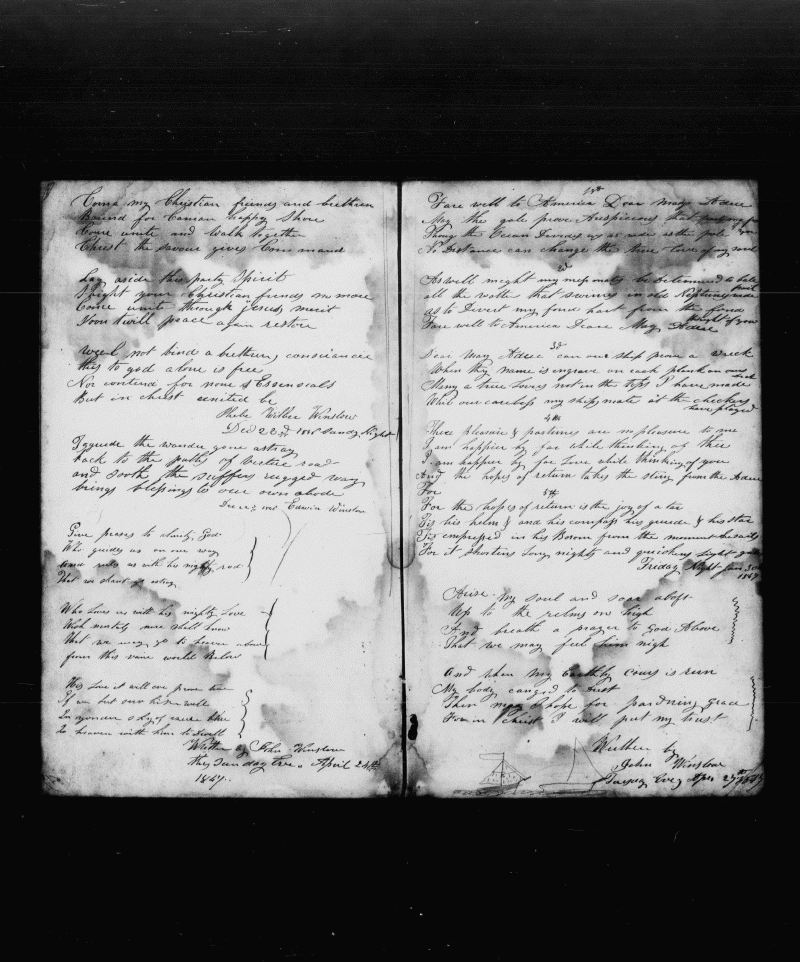 Come my Christian friends and brethren
Bound for Canan happy Shore
Come unite and walk togeth
Christ the savour gives Command
Lay aside this party Spirit
fright your Christian friends no more
Come unite through jesus merit
Now twill peace again restore
Weel not bind a brethren consciance
this to god alone is free
Nor contend for none Essensials
But in christ united be
Phebe Wilber Winslow
Dec 22nd Sunday Night
the wander gone astray
back to the paths of vertue road
and sooth the rugged way
brings blessings to our own abode
Edwin Winslow
Give to God
Who guides us on our way
And rules us with his mighty rod
That we shant go astray
Who Loves us with his mighty Love
Wich mortals neer shall know
That we may go to heaven above
from this world Below
His Love it will ever prove
If we but our
In yonder sky of
In heaven with him to dwell
Written by John Winslow
this Sunday Eve. April 24th
1847.
1st
Fare well to America Dear Mary Adree
May the gale prove Auspicious that
Though the Ocean Divides us as wide as the pole
No Distance can change the true love of my soul
2d
As well might my be
all the watter that swims in old Neptunes
as to Divert my fond hart from the fond
thought of you
Fare well to America Deare May Adree
3d
Dear May Adree can our ship prove a wreck
When thy name is engrave on each plank on our
Meny a true Lovers not in the tops I have made
While our careless my ships mate at the checkers
have played
4th
These pleasure & pastimes are no pleasure to me
I am happier by far while thinking of thee
I am happier by far Love while thinking of you
And the hopes of return takes the sting from the Adieu
For
5th
For the hopes of return is the joy of a tar
Tis his helm & and his compass his guide & his star
Tis impressed in his Bosom from the moment he sails
For it shortens Long nights and quickens Light
Friday Night Jan
1847
Arise my soul and soar aloft
Up to the relms on high
And breath a prayer to God Above
That we may feel him nigh
And when my Earthly Cours is run
My body canged to Dust
Then may I hope for pardning grace
For in Christ I will put my trust
Written by
John Winslow
Tuesday Eve Apr 27th 1847